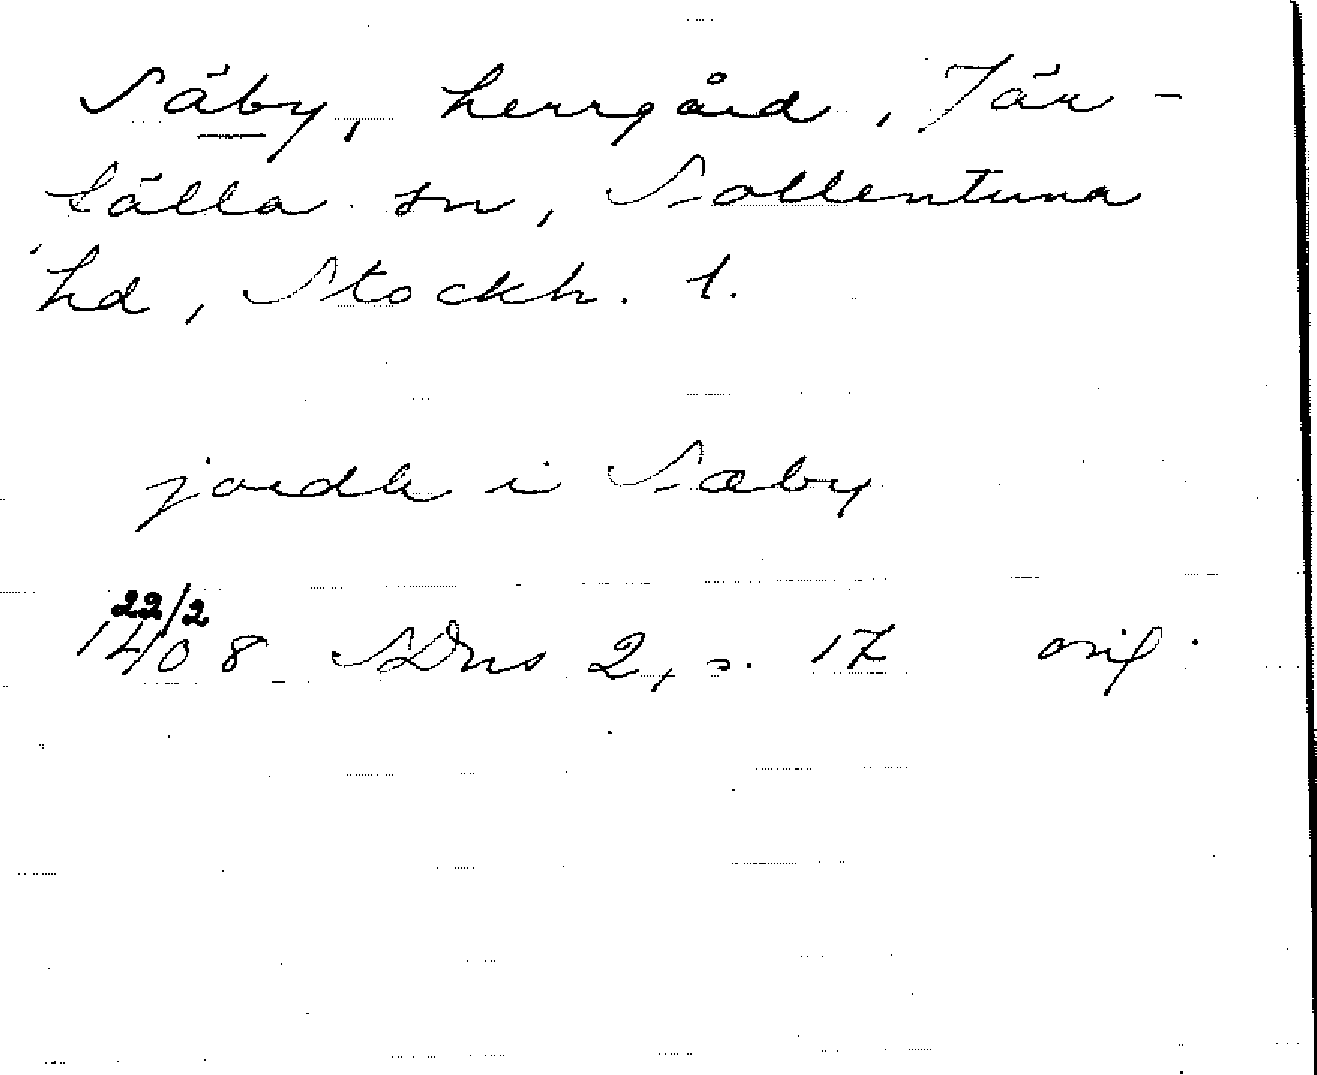 Säby, herrgård, Jär-
fälla sn, Sollentuna
hd, Stockh. l.
jordh i Sæby
22/2
1408 SDns 2, s. 17 orig.